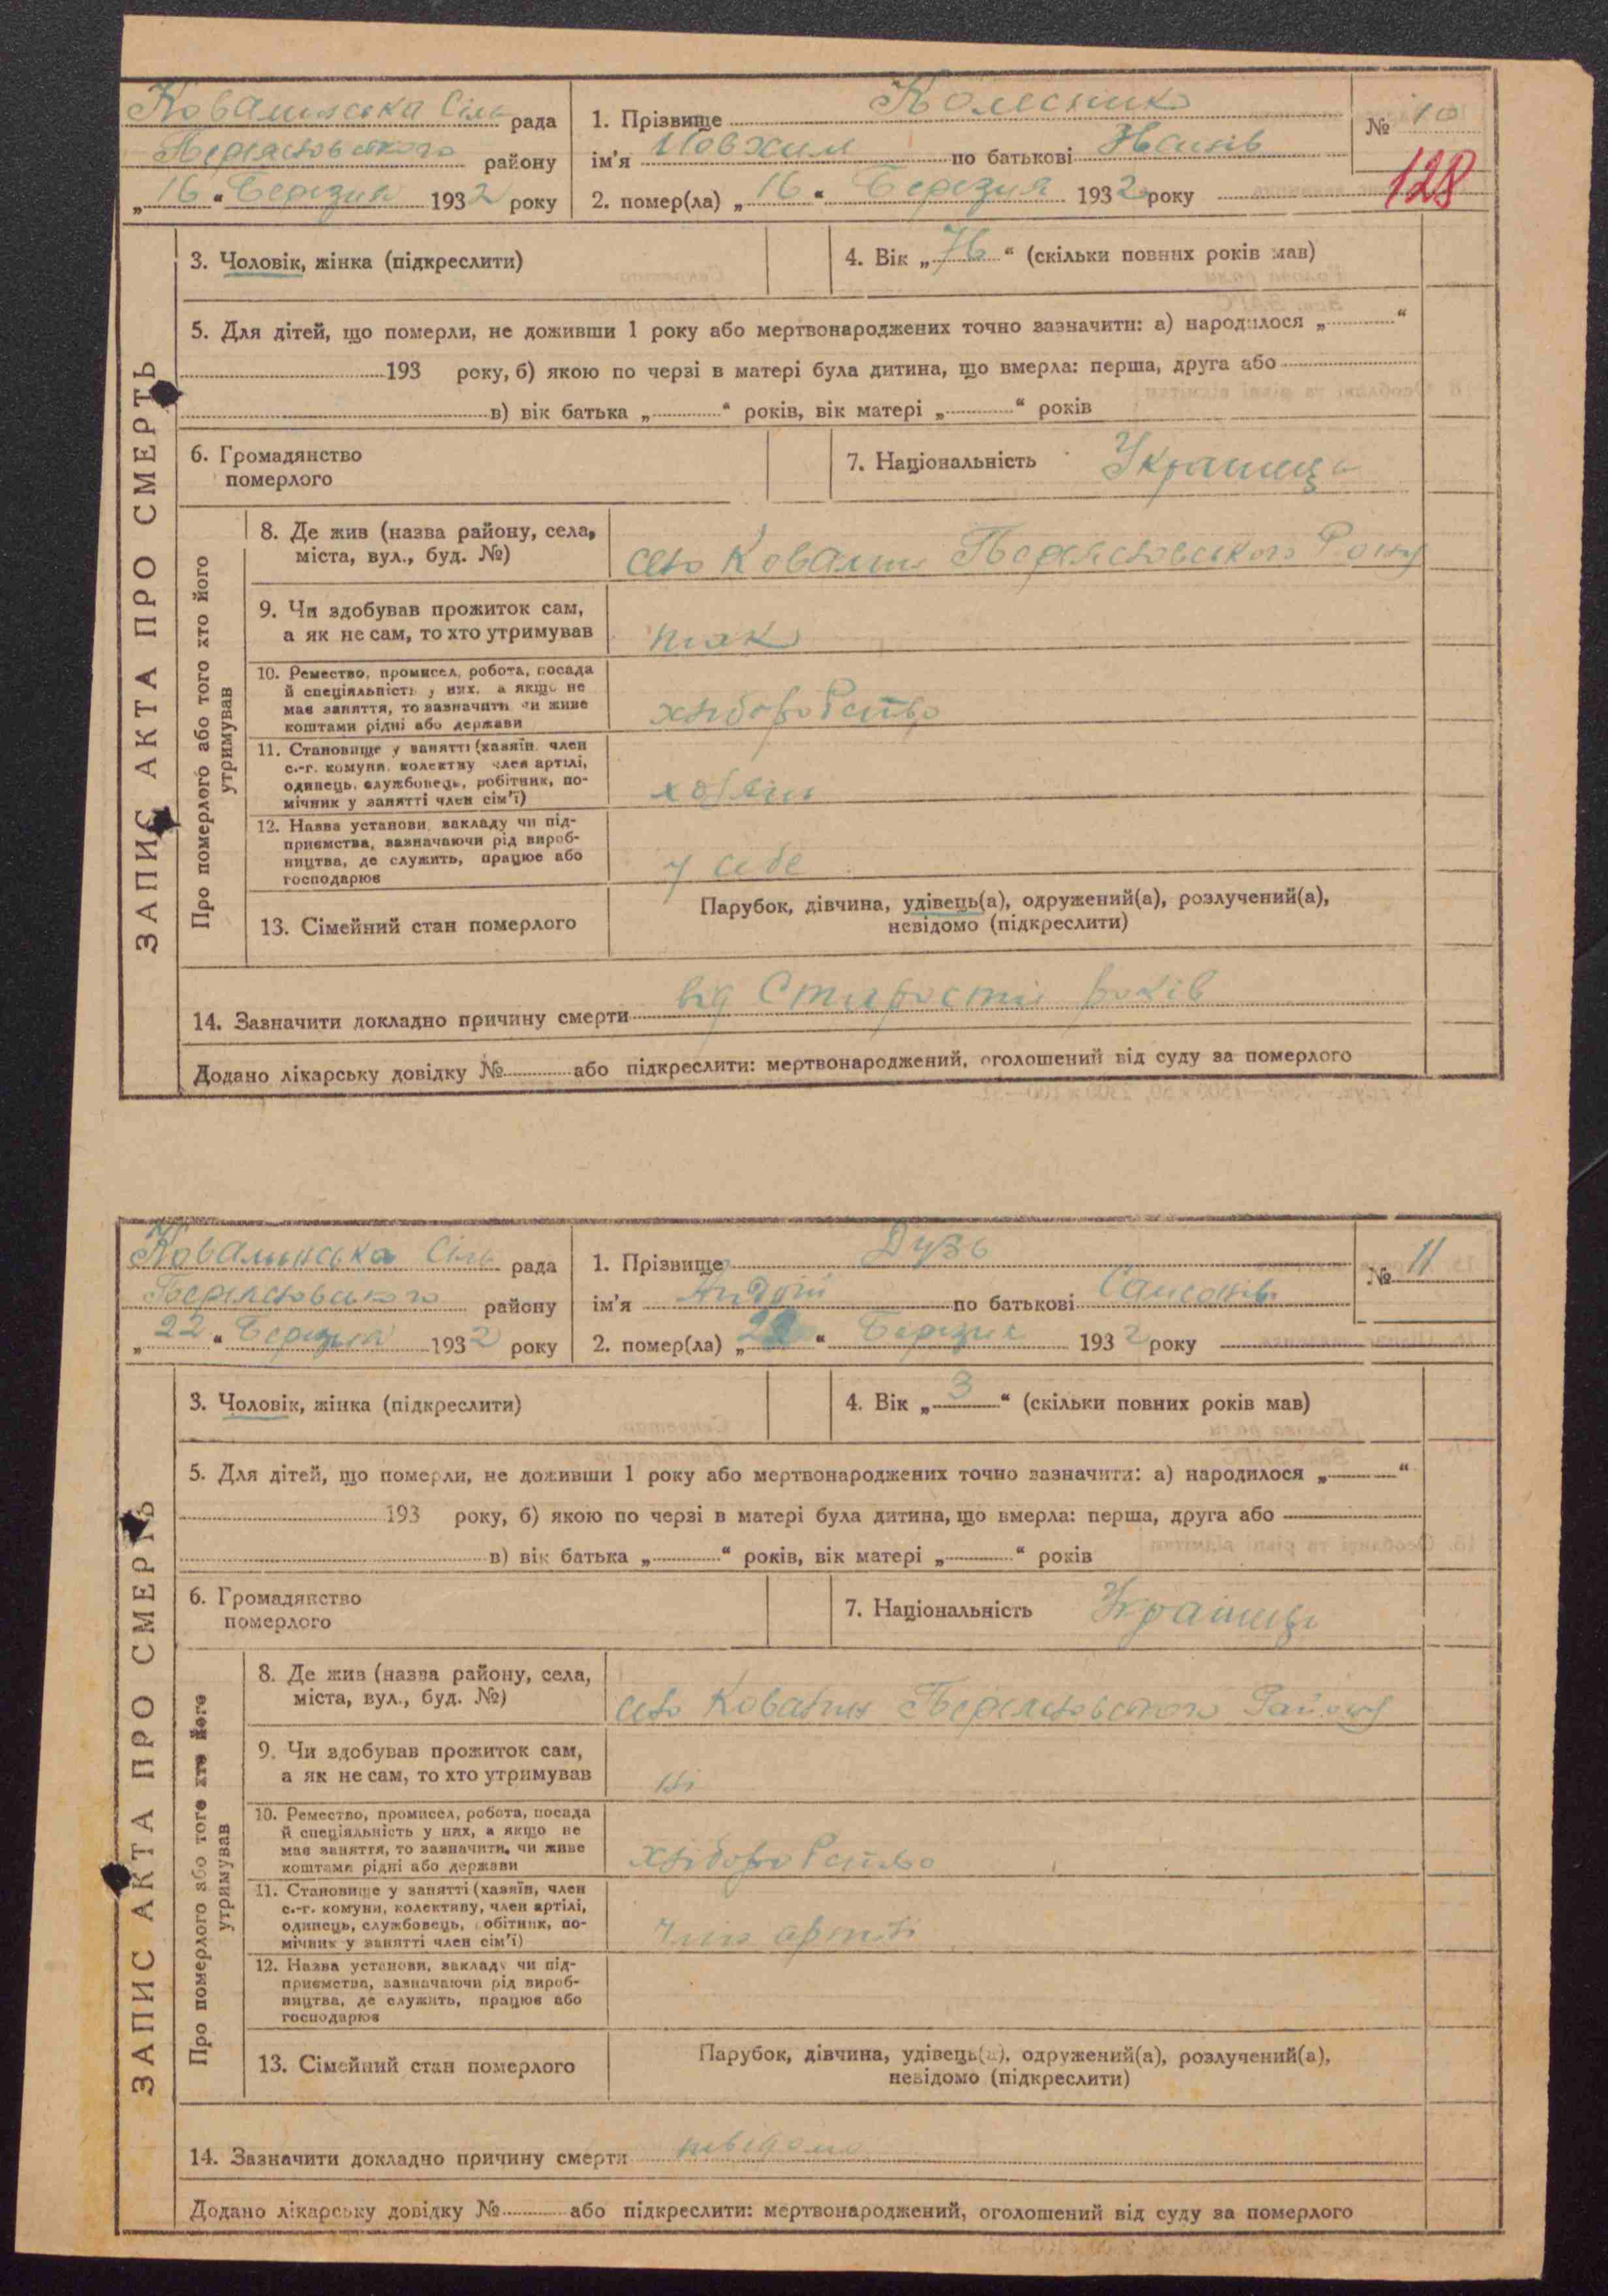 Ковалинська Сіль рада
Переяславського району
„16“ Березня 1932 року
1. Прізвище Колесник
ім'я Йовхим по батькові Іванів
2. помер(ла) „16“ Березня 1932 року
№ 10
128
ЗАПИС АКТА ПРО СМЕРТЬ
3. Чоловік, жінка (підкреслити)
4. Вік „76“ (скільки повних років мав)
5. Для дітей, що померли, не доживши 1 року або мертвонароджених точно зазначити: а) народилося „ “
193 року, б) якою по черзі в матері була дитина, що вмерла: перша, друга або
в) вік батька „ “ років, вік матері „ “ років
6. Громадянство
померлого
7. Національність Українець
Про померлого або того хто його
утримував
8. Де жив (назва району, села,
міста, вул., буд. №)
село Ковалин Переясловського Району
9. Чи здобував прожиток сам,
а як не сам, то хто утримував
так
10. Ремество, промисел, робота, посада
й спеціяльність у них, а якщо не
має заняття, то зазначити чи живе
коштами рідні або держави
хліборобство
11. Становище у занятті (хазяїн, член
с.-г. комуни, колективу член артілі,
одинець, службовець, робітник, по-
мічник у занятті член сім'ї)
12. Назва установи, закладу чи під-
приємства, зазначаючи рід вироб-
ництва, де служить, працює або
господарює
у себе
13. Сімейний стан померлого
Парубок, дівчина, удівець(а), одружений(а), розлучений(а),
невідомо (підкреслити)
14. Зазначити докладно причину смерти від Старости років
Додано лікарську довідку № або підкреслити: мертвонароджений, оголошений від суду за померлого
Ковалинська Сіль рада
Переясловського району
„22“ Березня 1932 року
1. Прізвище Дузь
ім'я Андрій по батькові Самсонів
2. помер(ла) „22“ Березня 1932 року
№ 11
ЗАПИС АКТА ПРО СМЕРТЬ
3. Чоловік, жінка (підкреслити)
4. Вік „3“ (скільки повних років мав)
5. Для дітей, що померли, не доживши 1 року або мертвонароджених точно зазначити: а) народилося „ “
193 року, б) якою по черзі в матері була дитина, що вмерла: перша, друга або
в) вік батька „ “ років, вік матері „ “ років
6. Громадянство
померлого
7. Національність Українець
Про померлого або того хто його
утримував
8. Де жив (назва району, села,
міста, вул., буд. №)
село Ковалин Переясловського Району
9. Чи здобував прожиток сам,
а як не сам, то хто утримував
ні
10. Ремество, промисел, робота, посада
й спеціяльність у них, а якщо не
має заняття, то зазначити, чи живе
коштами рідні або держави
хліборобство
11. Становище у занятті (хазяїн, член
с.-г. комуни, колективу, член артілі,
одинець, службовець, робітник, по-
мічник у занятті член сім'ї)
член артілі
12. Назва установи, закладу чи під-
приємства, зазначаючи рід вироб-
ництва, де служить, працює або
господарює
13. Сімейний стан померлого
Парубок, дівчина, удівець(а), одружений(а), розлучений(а),
невідомо (підкреслити)
14. Зазначити докладно причину смерти невідомо
Додано лікарську довідку № або підкреслити: мертвонароджений, оголошений від суду за померлого